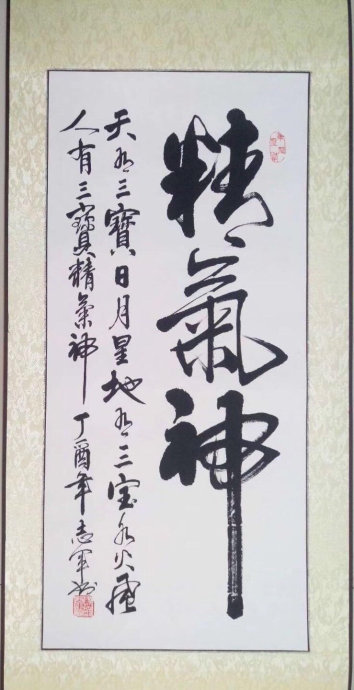 精氣神
天有三寶日月星地有三宝水火風
人有三寶精氣神丁酉年志军书